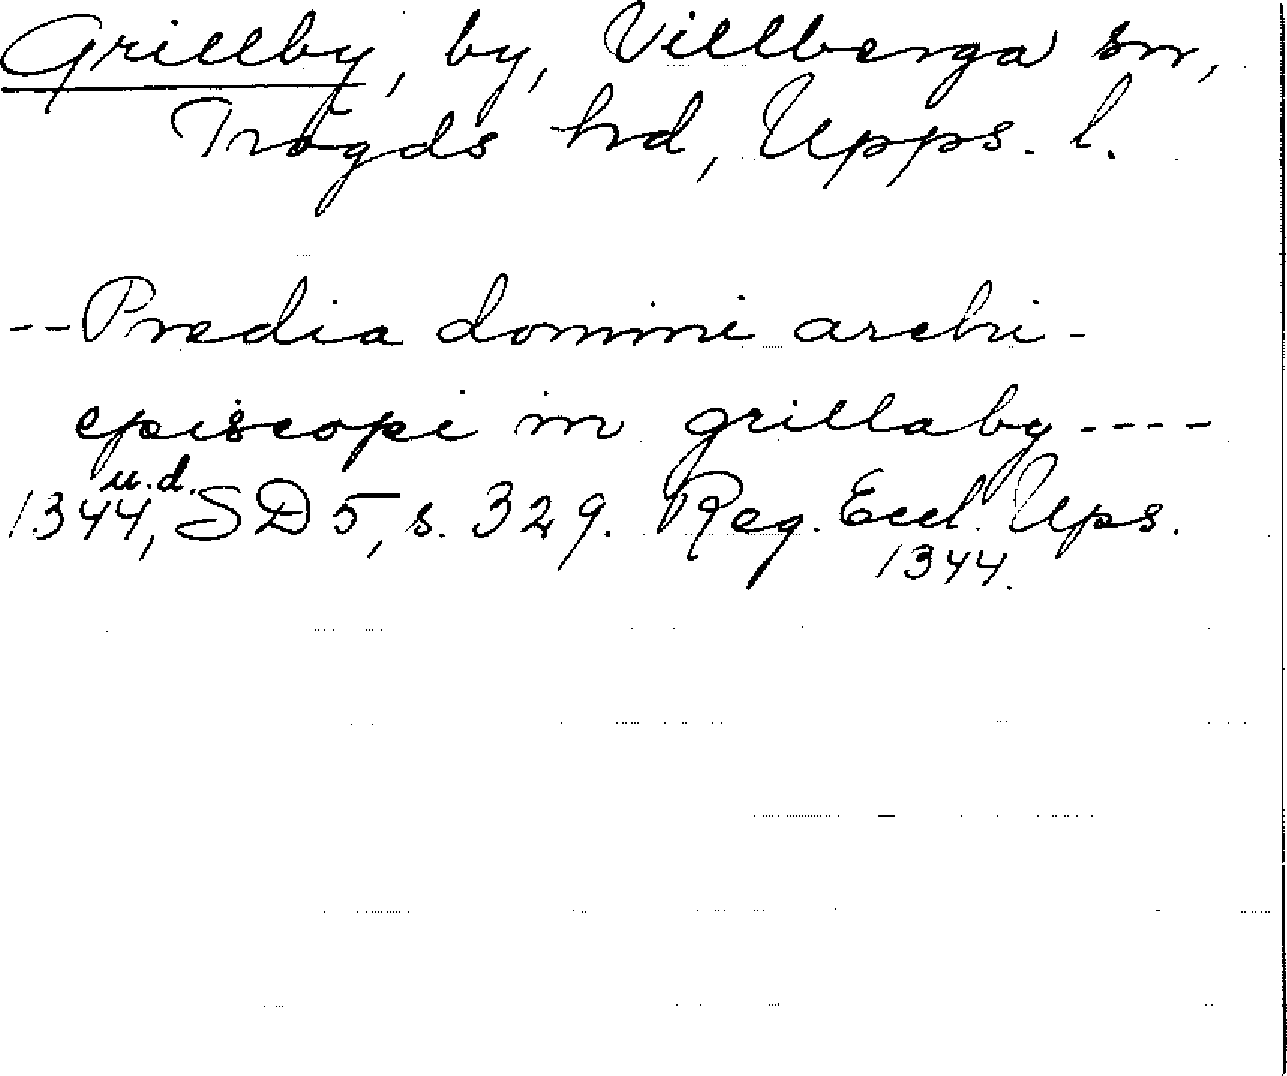 Grillby, by, Villberga sn,
Trögds hd, Upps. l.
--Predia domini archi-
episcopi in grillaby----
u.d.
1344, SD 5, s. 329. Reg. Eccl. Ups.
1344.